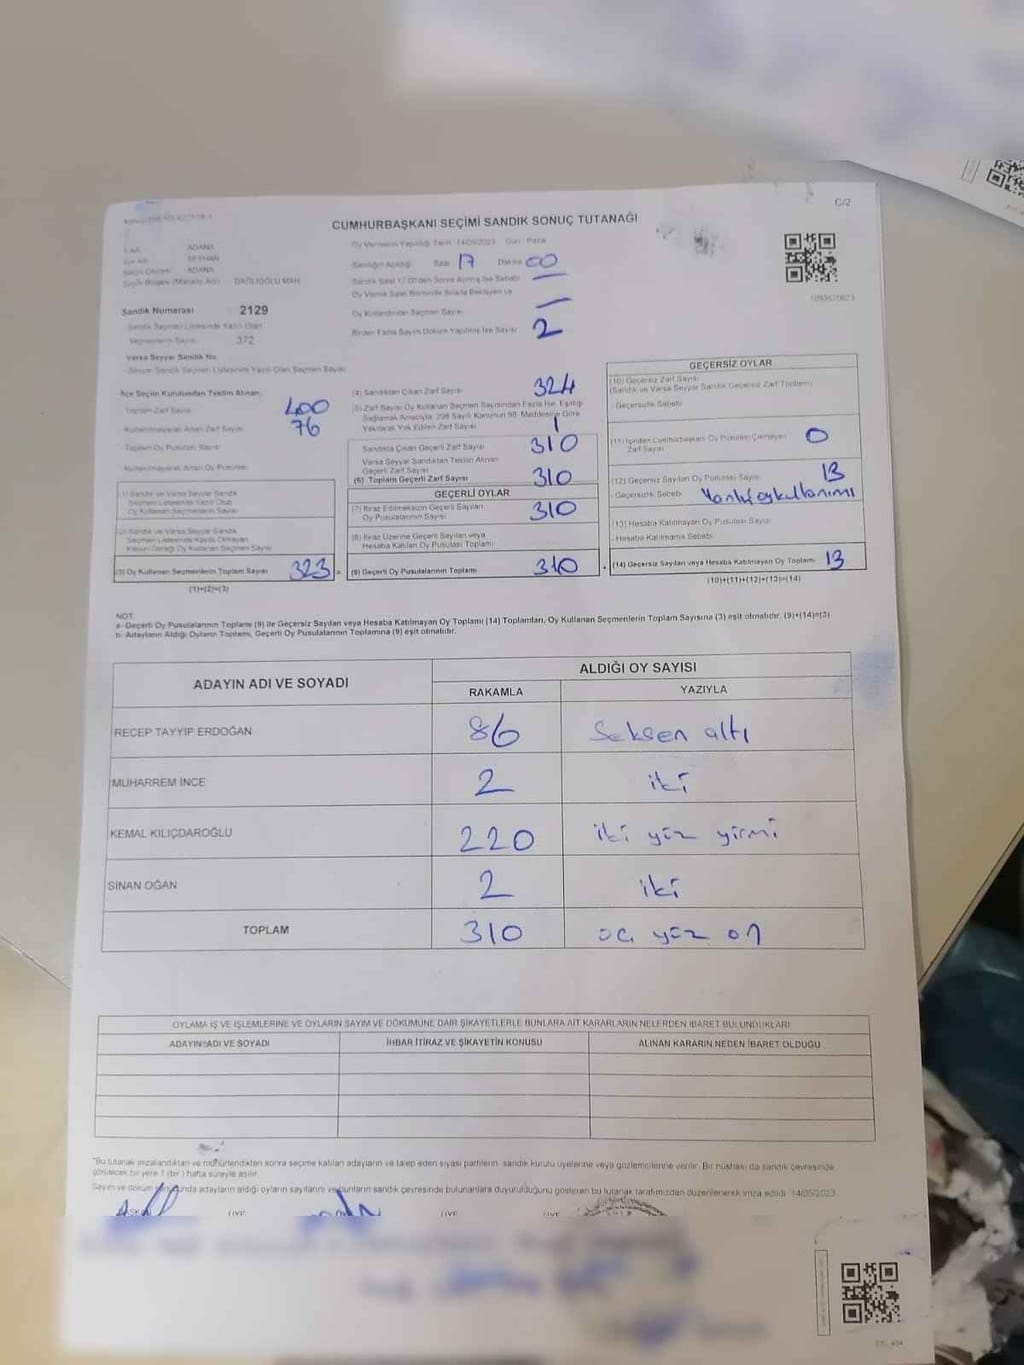 C/2
CUMHURBAŞKANI SEÇİMİ SANDIK SONUÇ TUTANAĞI
ADANA
SEYHAN
ADANA
Seçim Bölgesi (Mahalle Adı) DAĞLIOĞLU MAH.
Sandık Numarası 2129
Sandık Seçmen Listesinde Yazılı Olan
Seçmenlerin Sayısı 372
Varsa Seyyar Sandık No
Seyyar Sandık Seçmen Listesinde Yazılı Olan Seçmen Sayısı
Oy Vermenin Yapıldığı Tarih 14/05/2023 Gün Pazar
Sandığın Açıldığı Saat 17 Dakika 00
Sandık Saat 17:00'den Sonra Açılmış İse Sebebi
Oy Kullandırılan Seçmen Sayısı
Birden Fazla Sayım Döküm Yapılmış İse Sayısı 2
1093620623
İlçe Seçim Kurulundan Teslim Alınan
Toplam Zarf Sayısı 400
Kullanılmayarak Artan Zarf Sayısı 76
Toplam Oy Pusulası Sayısı
Kullanılmayarak Artan Oy Pusulası
(1) Sandık ve Varsa Seyyar Sandık
Seçmen Listesinde Yazılı Olup
Oy Kullanan Seçmenlerin Sayısı
(2) Sandık ve Varsa Seyyar Sandık
Seçmen Listesinde Kayıtlı Olmayan
Kanun Gereği Oy Kullanan Seçmen Sayısı
(3) Oy Kullanan Seçmenlerin Toplam Sayısı 323 =
(1)+(2)=(3)
(4) Sandıktan Çıkan Zarf Sayısı 324
(5) Zarf Sayısı Oy Kullanan Seçmen Sayısından Fazla İse, Eşitliği
Sağlamak Amacıyla, 298 Sayılı Kanunun 98. Maddesine Göre
Yakılarak Yok Edilen Zarf Sayısı 1
Sandıkta Çıkan Geçerli Zarf Sayısı 310
Varsa Seyyar Sandıktan Teslim Alınan
Geçerli Zarf Sayısı
(6) Toplam Geçerli Zarf Sayısı 310
GEÇERLİ OYLAR
(7) İtiraz Edilmeksizin Geçerli Sayılan
Oy Pusulalarının Sayısı 310
(8) İtiraz Üzerine Geçerli Sayılan veya
Hesaba Katılan Oy Pusulası Toplamı
(9) Geçerli Oy Pusulalarının Toplamı 310 +
GEÇERSİZ OYLAR
(10) Geçersiz Zarf Sayısı
(Sandık ve Varsa Seyyar Sandık Geçersiz Zarf Toplamı)
Geçersizlik Sebebi
(11) İçinden Cumhurbaşkanı Oy Pusulası Çıkmayan
Zarf Sayısı 0
(12) Geçersiz Sayılan Oy Pusulası Sayısı 13
Geçersizlik Sebebi Yanlış oy kullanımı
(13) Hesaba Katılmayan Oy Pusulası Sayısı
Hesaba Katılmama Sebebi
(14) Geçersiz Sayılan veya Hesaba Katılmayan Oy Toplamı 13
(10)+(11)+(12)+(13)=(14)
NOT:
a- Geçerli Oy Pusulalarının Toplamı (9) ile Geçersiz Sayılan veya Hesaba Katılmayan Oy Toplamı (14) Toplamları, Oy Kullanan Seçmenlerin Toplam Sayısına (3) eşit olmalıdır. (9)+(14)=(3)
b- Adayların Aldığı Oyların Toplamı, Geçerli Oy Pusulalarının Toplamına (9) eşit olmalıdır.
ADAYIN ADI VE SOYADI
ALDIĞI OY SAYISI
RAKAMLA YAZIYLA
RECEP TAYYİP ERDOĞAN 86 Seksen altı
MUHARREM İNCE 2 iki
KEMAL KILIÇDAROĞLU 220 iki yüz yirmi
SİNAN OĞAN 2 iki
TOPLAM 310 üç yüz on
OYLAMA İŞ VE İŞLEMLERİNE VE OYLARIN SAYIM VE DÖKÜMÜNE DAİR ŞİKAYETLERLE BUNLARA AİT KARARLARIN NELERDEN İBARET BULUNDUKLARI
ADAYIN ADI VE SOYADI İHBAR İTİRAZ VE ŞİKAYETİN KONUSU ALINAN KARARIN NEDEN İBARET OLDUĞU
"Bu tutanak imzalandıktan ve mühürlendikten sonra seçime katılan adayların ve talep eden siyasi partilerin sandık kurulu üyelerine veya gözlemcilerine verilir. Bir nüshası da sandık çevresinde
görülecek bir yere 1 (bir) hafta süreyle asılır.
Sayım ve döküm sonunda adayların aldığı oyların sayılarını ve bunların sandık çevresinde bulunanlara duyurulduğunu gösteren bu tutanak tarafımızdan düzenlenerek imza edildi. 14/05/2023
ÜYE ÜYE ÜYE